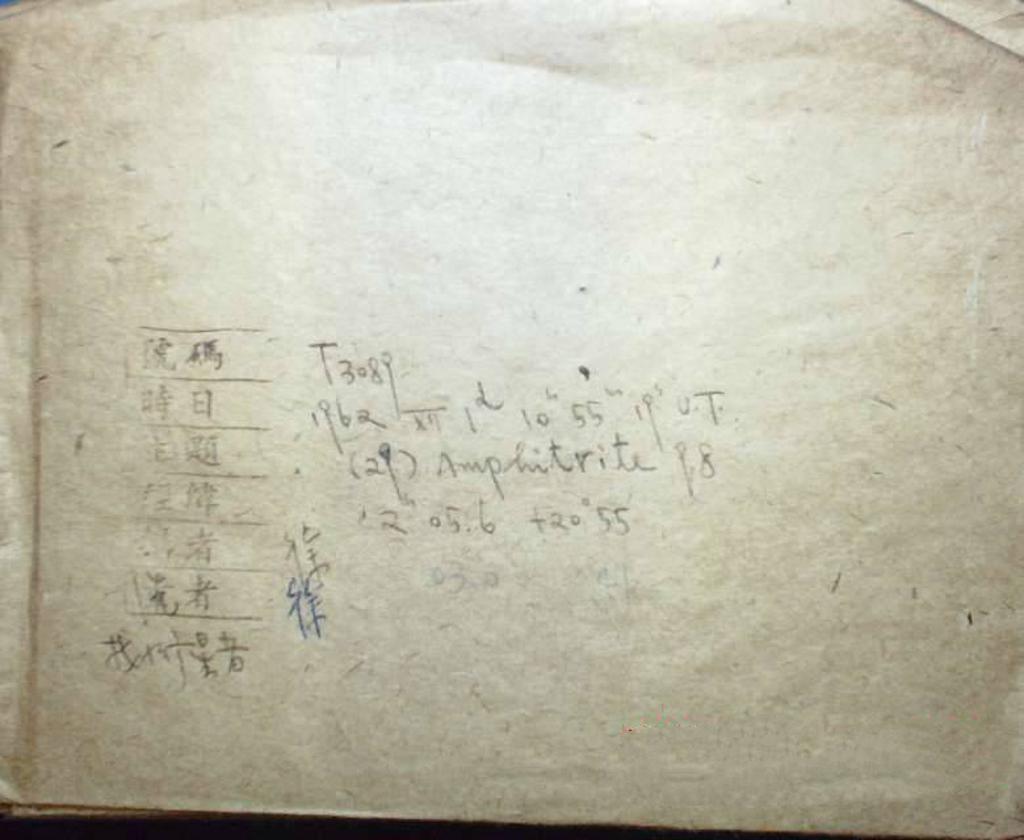 號碼 T3089
時日 1962 XII 1ᵈ 10ʰ 55ᵐ 19ˢ U.T.
題 (29) Amphitrite 9.8
2ʰ 05.6 +20°55
者 徐
者 徐
找小行星者